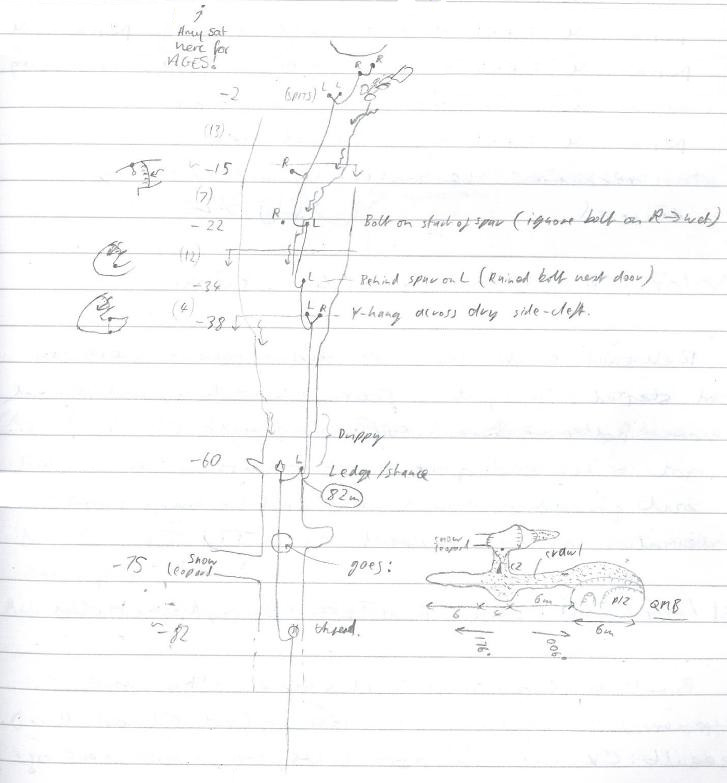 Amy sat
here for
AGES!
R R
-2 (SPITS) L L
(13)
R
~ -15
(7)
R L
-22 Bolt on start of spur (ignore bolt on R → wet)
(12)
L
-34 Behind spur on L (Ruined bolt next door)
(4)
L R
-38 Y-hang across dry side-cleft.
Drippy
-60 L Ledge/stance
82m
-75 Snow
leopard
goes:
~ -82 thread.
snow
leopard
C2
crawl
P12
QMB
6 6m
6m